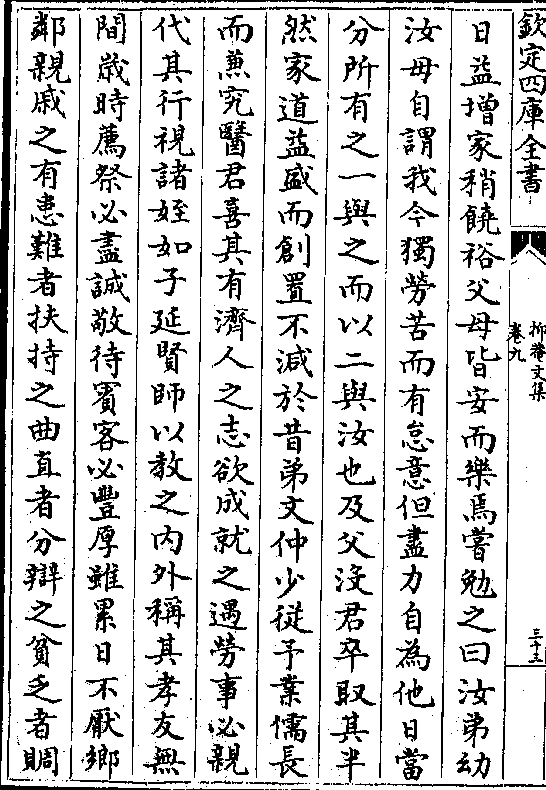 欽定四庫全書
抑菴文集
卷九
三十三
日益增家稍饒裕父母皆安而樂焉嘗勉之曰汝弟幼
汝毋自謂我今獨勞苦而有怠意但盡力自為他日當
分所有之一與之而以二與汝也及父沒君卒取其半
然家道益盛而創置不減於昔弟文仲少從予業儒長
而兼究醫君喜其有濟人之志欲成就之遇勞事必親
代其行視諸姪如子延賢師以教之内外稱其孝友無
間歲時薦祭必盡誠敬待賓客必豐厚雖累日不厭鄉
鄰親戚之有患難者扶持之曲直者分辯之貧乏者賙